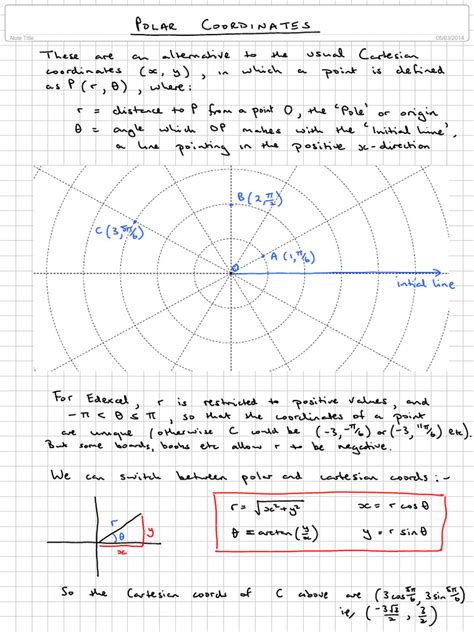 POLAR COORDINATES
Note Title
05/03/2014
These are an alternative to the usual Cartesian
coordinates (x, y), in which a point is defined
as P(r, θ), where:
r = distance to P from a point O, the 'Pole' or origin
θ = angle which OP makes with the 'Initial Line',
a line pointing in the positive x-direction
B(2, π/2)
C(3, 5π/6)
A(1, π/6)
O
initial line
For Edexcel, r is restricted to positive values, and
-π < θ ≤ π, so that the coordinates of a point
are unique (otherwise C could be (-3, -π/6) or (-3, 11π/6) etc).
But some boards, books etc allow r to be negative.
We can switch between polar and cartesian coords :-
r
y
θ
x
r = √x²+y²
x = r cos θ
θ = arctan(y/x)
y = r sin θ
So the Cartesian coords of C above are (3cos 5π/6, 3sin 5π/6)
ie, (-3√3/2, 3/2)